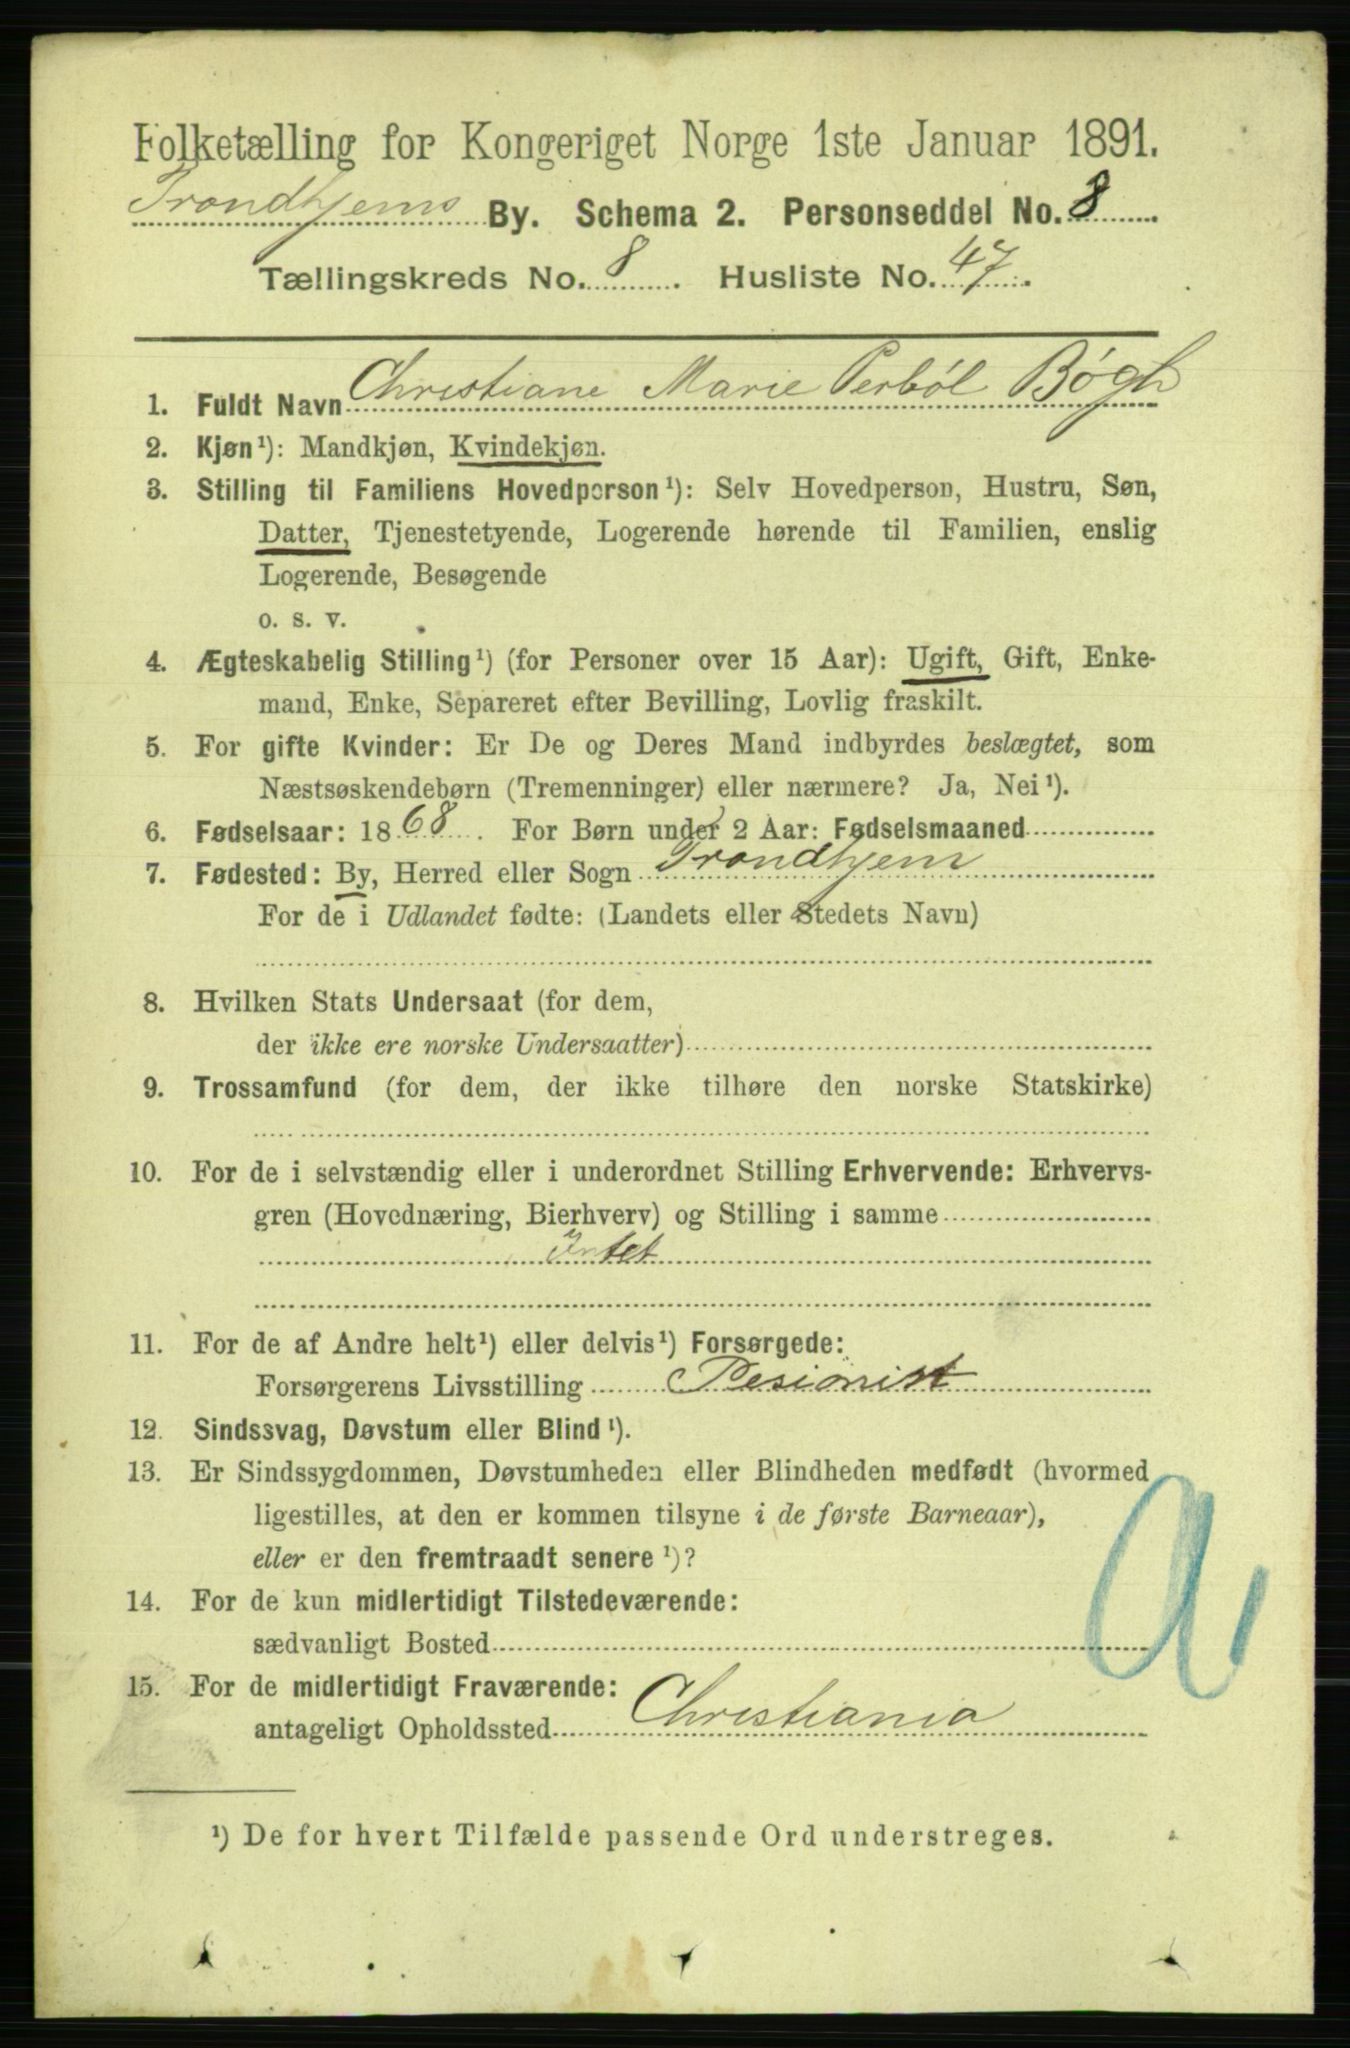 Folketælling for Kongeriget Norge 1ste Januar 1891.
Trondhjems By. Schema 2. Personseddel No. 8
Tællingskreds No. 8. Husliste No. 47.
1. Fuldt Navn Christiane Marie Perböl Bögh
2. Kjøn¹): Mandkjøn, Kvindekjøn.
3. Stilling til Familiens Hovedperson¹): Selv Hovedperson, Hustru, Søn,
Datter, Tjenestetyende, Logerende hørende til Familien, enslig
Logerende, Besøgende
o. s. v.
4. Ægteskabelig Stilling¹) (for Personer over 15 Aar): Ugift, Gift, Enke-
mand, Enke, Separeret efter Bevilling, Lovlig fraskilt.
5. For gifte Kvinder: Er De og Deres Mand indbyrdes beslægtet, som
Næstsøskendebørn (Tremenninger) eller nærmere? Ja, Nei¹).
6. Fødselsaar: 1868. For Børn under 2 Aar: Fødselsmaaned
7. Fødested: By, Herred eller Sogn Trondhjem
For de i Udlandet fødte: (Landets eller Stedets Navn)
8. Hvilken Stats Undersaat (for dem,
der ikke ere norske Undersaatter)
9. Trossamfund (for dem, der ikke tilhøre den norske Statskirke)
10. For de i selvstændig eller i underordnet Stilling Erhvervende: Erhvervs-
gren (Hovednæring, Bierhverv) og Stilling i samme
Intet
11. For de af Andre helt¹) eller delvis¹) Forsørgede:
Forsørgerens Livsstilling Pesionist
12. Sindssvag, Døvstum eller Blind¹).
13. Er Sindssygdommen, Døvstumheden eller Blindheden medfødt (hvormed
ligestilles, at den er kommen tilsyne i de første Barneaar),
eller er den fremtraadt senere¹)?
14. For de kun midlertidigt Tilstedeværende:
sædvanligt Bosted
15. For de midlertidigt Fraværende:
antageligt Opholdssted Christiania
¹) De for hvert Tilfælde passende Ord understreges.